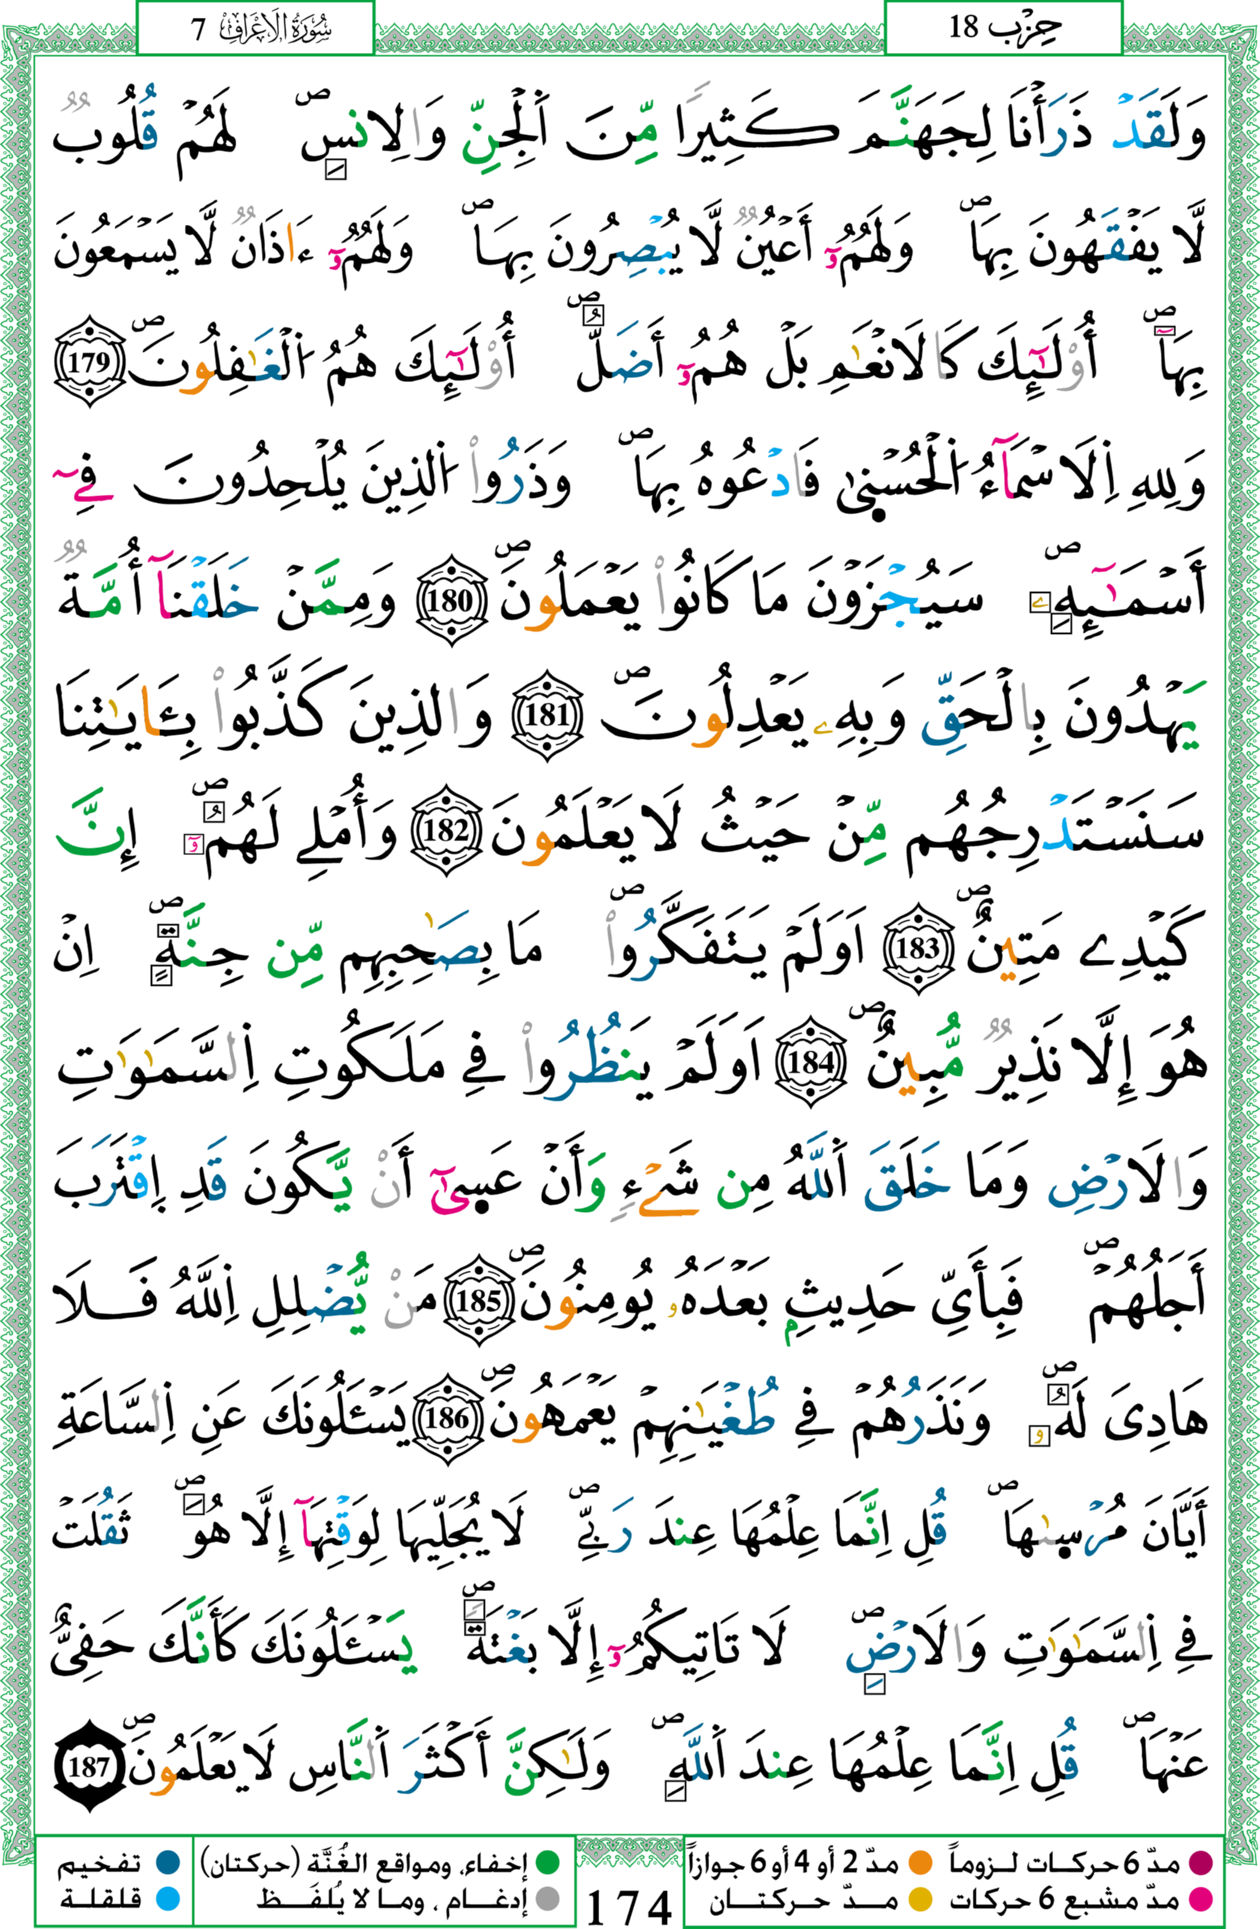 حِزْب 18
سُورَةُ الْأَعْرَافِ 7
وَلَقَدْ ذَرَأْنَا لِجَهَنَّمَ كَثِيرًا مِّنَ اَ۬لْجِنِّ وَالِانسِۖ لَهُمْ قُلُوبٌ
لَّا يَفْقَهُونَ بِهَاۖ وَلَهُمُۥٓ أَعْيُنٌ لَّا يُبْصِرُونَ بِهَاۖ وَلَهُمُۥٓ ءَاذَانٌ لَّا يَسْمَعُونَ
بِهَآۖ أُوْلَٰٓئِكَ كَالَانْعَٰمِ بَلْ هُمُۥٓ أَضَلُّۖ أُوْلَٰٓئِكَ هُمُ اُ۬لْغَٰفِلُونَۖ 179
وَلِلهِ اِ۬لَاسْمَآءُ اُ۬لْحُسْن۪ىٰ فَادْعُوهُ بِهَاۖ وَذَرُواْ اُ۬لذِينَ يُلْحِدُونَ فِےٓ
أَسْمَٰٓئِهِۦۖ سَيُجْزَوْنَ مَا كَانُواْ يَعْمَلُونَۖ 180 وَمِمَّنْ خَلَقْنَآ أُمَّةٌ
يَهْدُونَ بِالْحَقِّ وَبِهِۦ يَعْدِلُونَۖ 181 وَالذِينَ كَذَّبُواْ بِـَٔايَٰتِنَا
سَنَسْتَدْرِجُهُم مِّنْ حَيْثُ لَا يَعْلَمُونَ 182 وَأُمْلِے لَهُمُۥٓۖ إِنَّ
كَيْدِے مَتِينٌۖ 183 اَوَلَمْ يَتَفَكَّرُواْۖ مَا بِصَٰحِبِهِم مِّن جِنَّةٍۖ اِنْ
هُوَ إِلَّا نَذِيرٌ مُّبِينٌۖ 184 اَوَلَمْ يَنظُرُواْ فِے مَلَكُوتِ اِ۬لسَّمَٰوَٰتِ
وَالَارْضِ وَمَا خَلَقَ اَ۬للَّهُ مِن شَےْءٍ وَأَنْ عَس۪ىٰٓ أَنْ يَّكُونَ قَدِ اِ۪قْتَرَبَ
أَجَلُهُمْۖ فَبِأَيِّ حَدِيثِۢ بَعْدَهُۥ يُومِنُونَۖ 185 مَنْ يُّضْلِلِ اِ۬للَّهُ فَلَا
هَادِىَ لَهُۥۖ وَنَذَرُهُمْ فِے طُغْيَٰنِهِمْ يَعْمَهُونَۖ 186 يَسْـَٔلُونَكَ عَنِ اِ۬لسَّاعَةِ
أَيَّانَ مُرْس۪ىٰهَاۖ قُلِ اِنَّمَا عِلْمُهَا عِندَ رَبِّےۖ لَا يُجَلِّيهَا لِوَقْتِهَآ إِلَّا هُوَۖ ثَقُلَتْ
فِے اِ۬لسَّمَٰوَٰتِ وَالَارْضِۖ لَا تَاتِيكُمُۥٓ إِلَّا بَغْتَةًۖ يَسْـَٔلُونَكَ كَأَنَّكَ حَفِىٌّ
عَنْهَاۖ قُلِ اِنَّمَا عِلْمُهَا عِندَ اَ۬للَّهِۖ وَلَٰكِنَّ أَكْثَرَ اَ۬لنَّاسِ لَا يَعْلَمُونَۖ 187
مدّ 6 حركات لـزوماً مدّ 2 أو 4 أو 6 جوازاً
مدّ مشبع 6 حركات مدّ حركتـان
174
إخفاء، ومواقع الغُنَّة (حركتان) تفخيم
إدغـام ، ومـا لا يُلفَـظ قلقلة